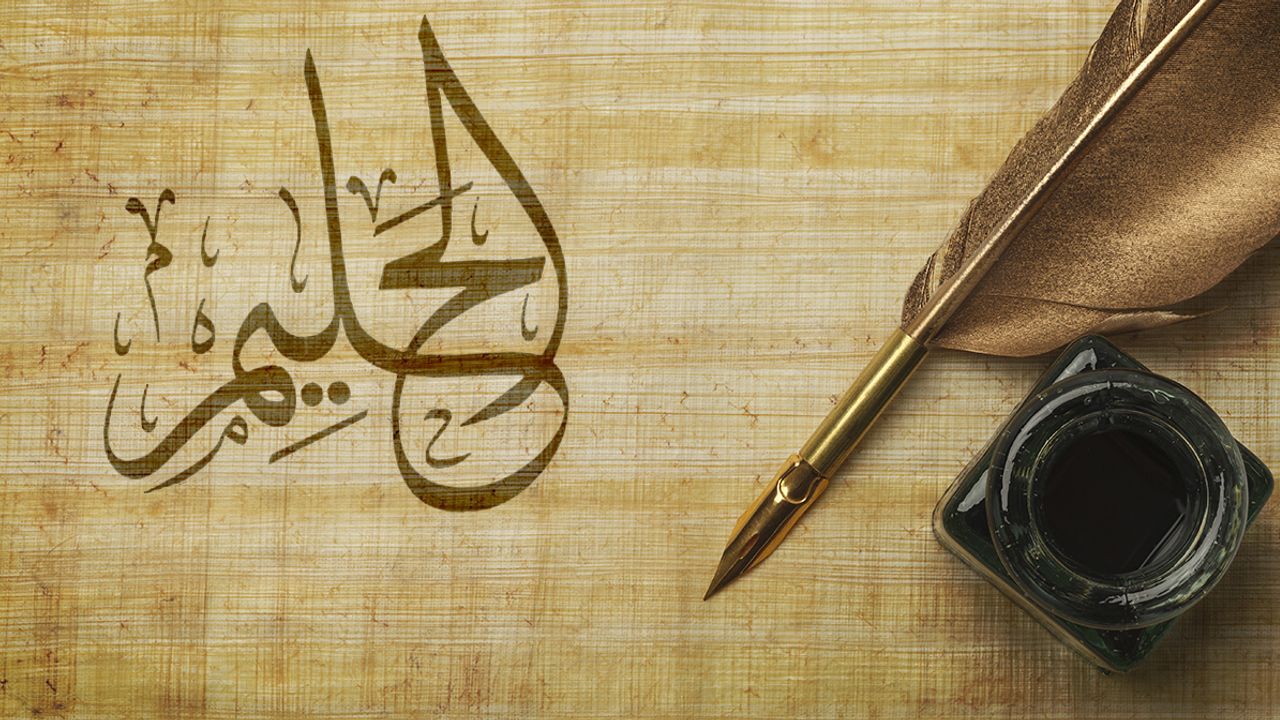 الحليم